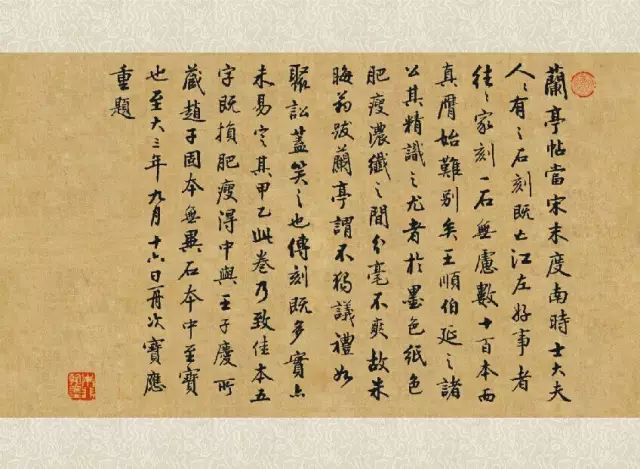 蘭亭帖當宋未度南時士大夫
人〻有之石刻既亡江左好事者
往〻家刻一石無慮數十百本而
真贋始難別矣王順伯延之諸
公其精識之尤者於墨色紙色
肥瘦濃纖之間分毫不爽故朱
晦翁跋蘭亭謂不獨議禮如
聚訟蓋笑之也傳刻既多實亦
未易定其甲乙此卷乃致佳本五
字既損肥瘦得中與王子慶所
藏趙子固本無異石本中至寶
也至大三年九月十六日舟次寶應
重題